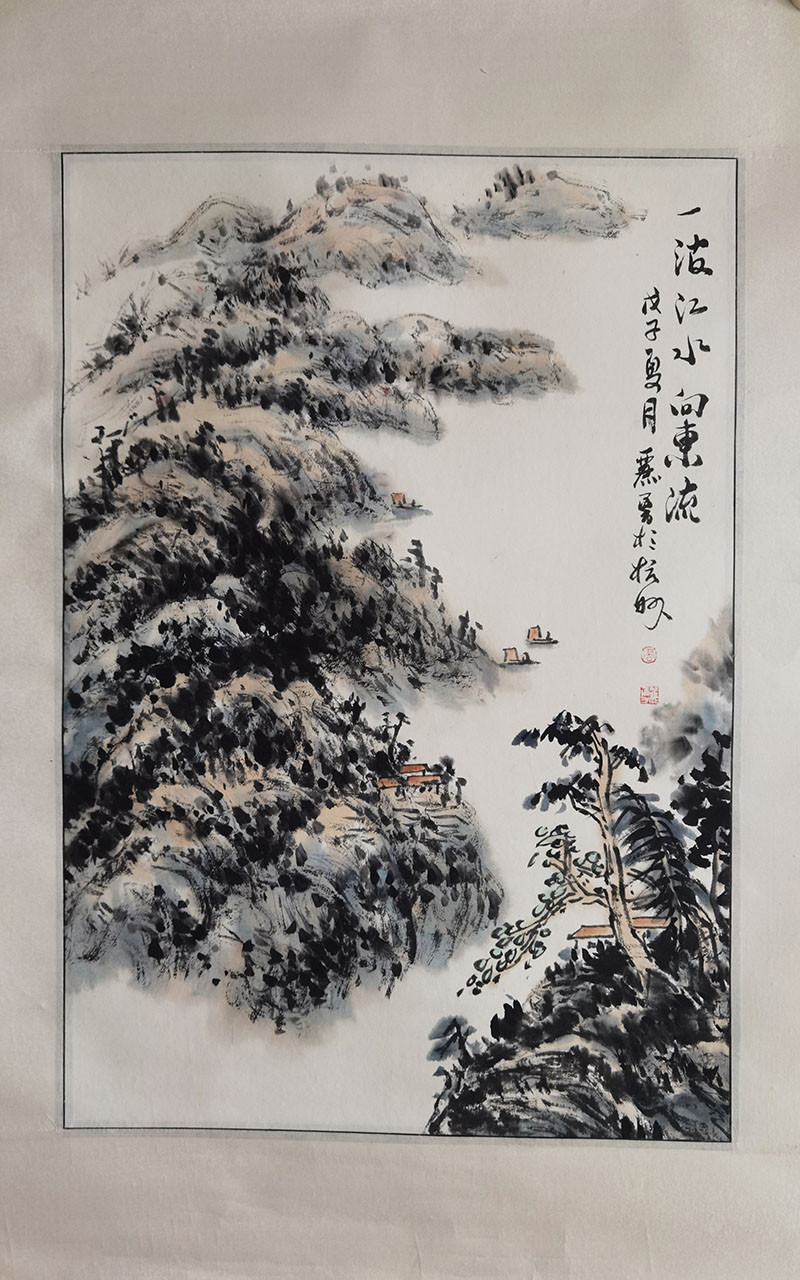 一波江水向東流
戊子夏月 勇於杭州